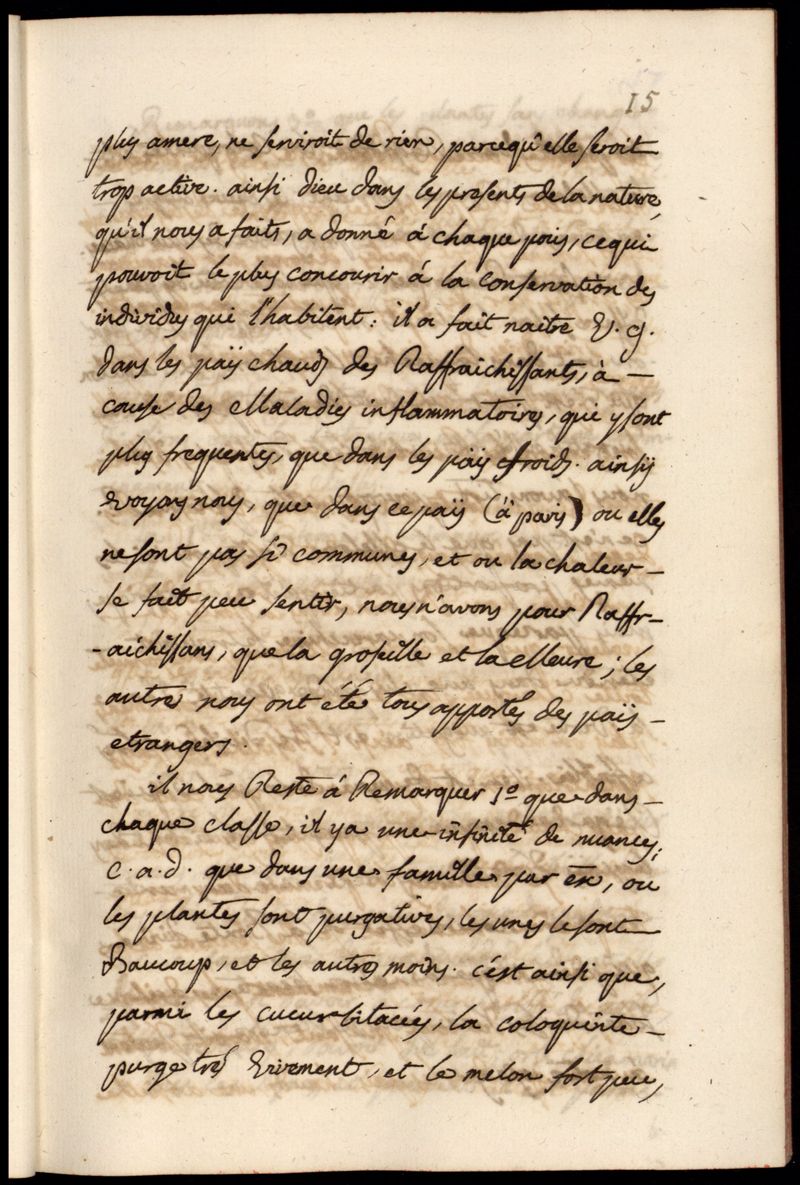 15
plus amere, ne serviroit de rien, parcequ'elle seroit
trop active. ainsi dieu dans les presents de la nature,
qu'il nous a faits, a donné à chaque païs, ce qui
pouvoit le plus concourir à la conservation des
individus qui l'habitent: il a fait naitre v. g.
dans les païs chauds des Raffraichissants, à —
cause des Maladies inflammatoires, qui y sont
plus frequentes, que dans les païs froids. ainsy
voyons nous, que dans ce païs (à paris) ou elles
ne sont pas si communes, et ou la chaleur —
se fait peu sentir, nous n'avons pour Raffr-
-aichissans, que la groseille et la Meure; les
autres nous ont été tous apportés des païs —
etrangers.
il nous Reste à Remarquer 1º que dans —
chaque classe, il y a une infinité de nuances;
c. a. d. que dans une famille par ex, ou
les plantes sont purgatives, les unes le sont
Baucoup, et les autres moins. c'est ainsi que,
parmi les cucurbitacées, la coloquinte —
purge tres vivement, et le melon fort peu,